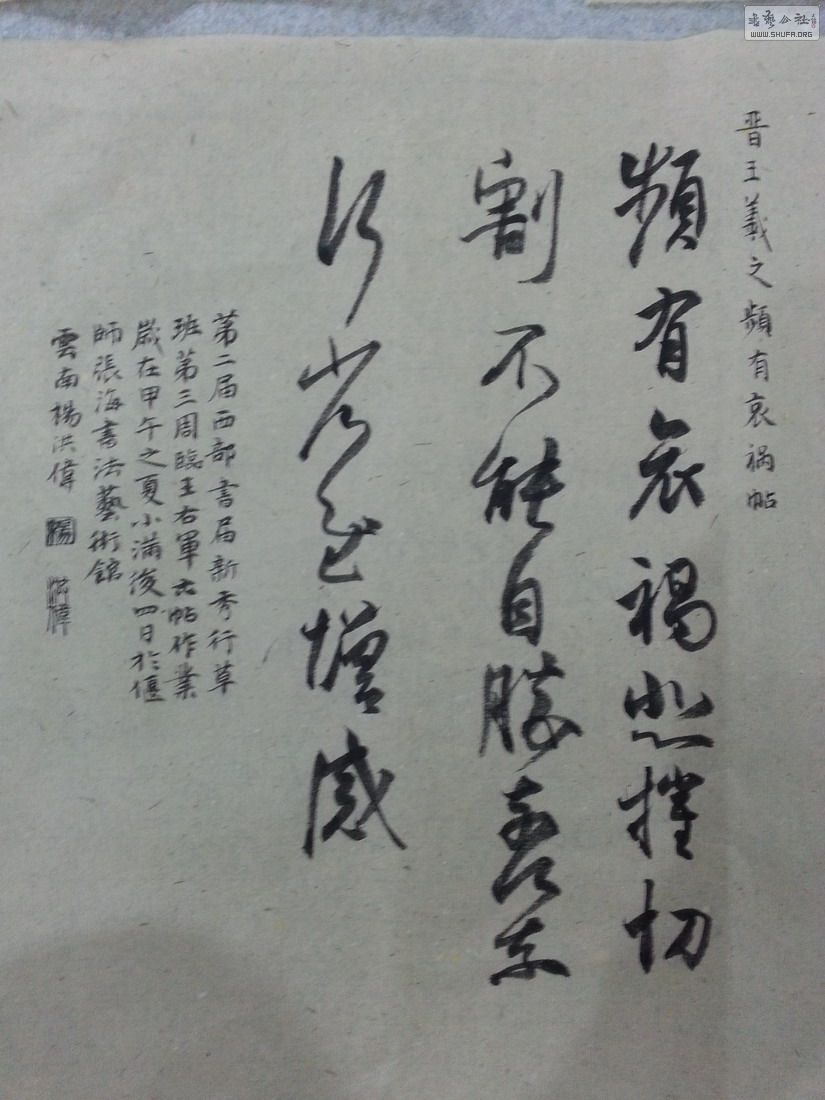 晋王羲之頻有哀禍帖
頻有哀禍悲摧切
割不能自勝奈何奈
何省慰增感
第二届西部書届新秀行草
班第三周臨王右軍六帖作業
歲在甲午之夏小滿後四日於偃
師張海書法藝術館
雲南楊洪偉
楊
洪偉
書藝公社
WWW.SHUFA.ORG